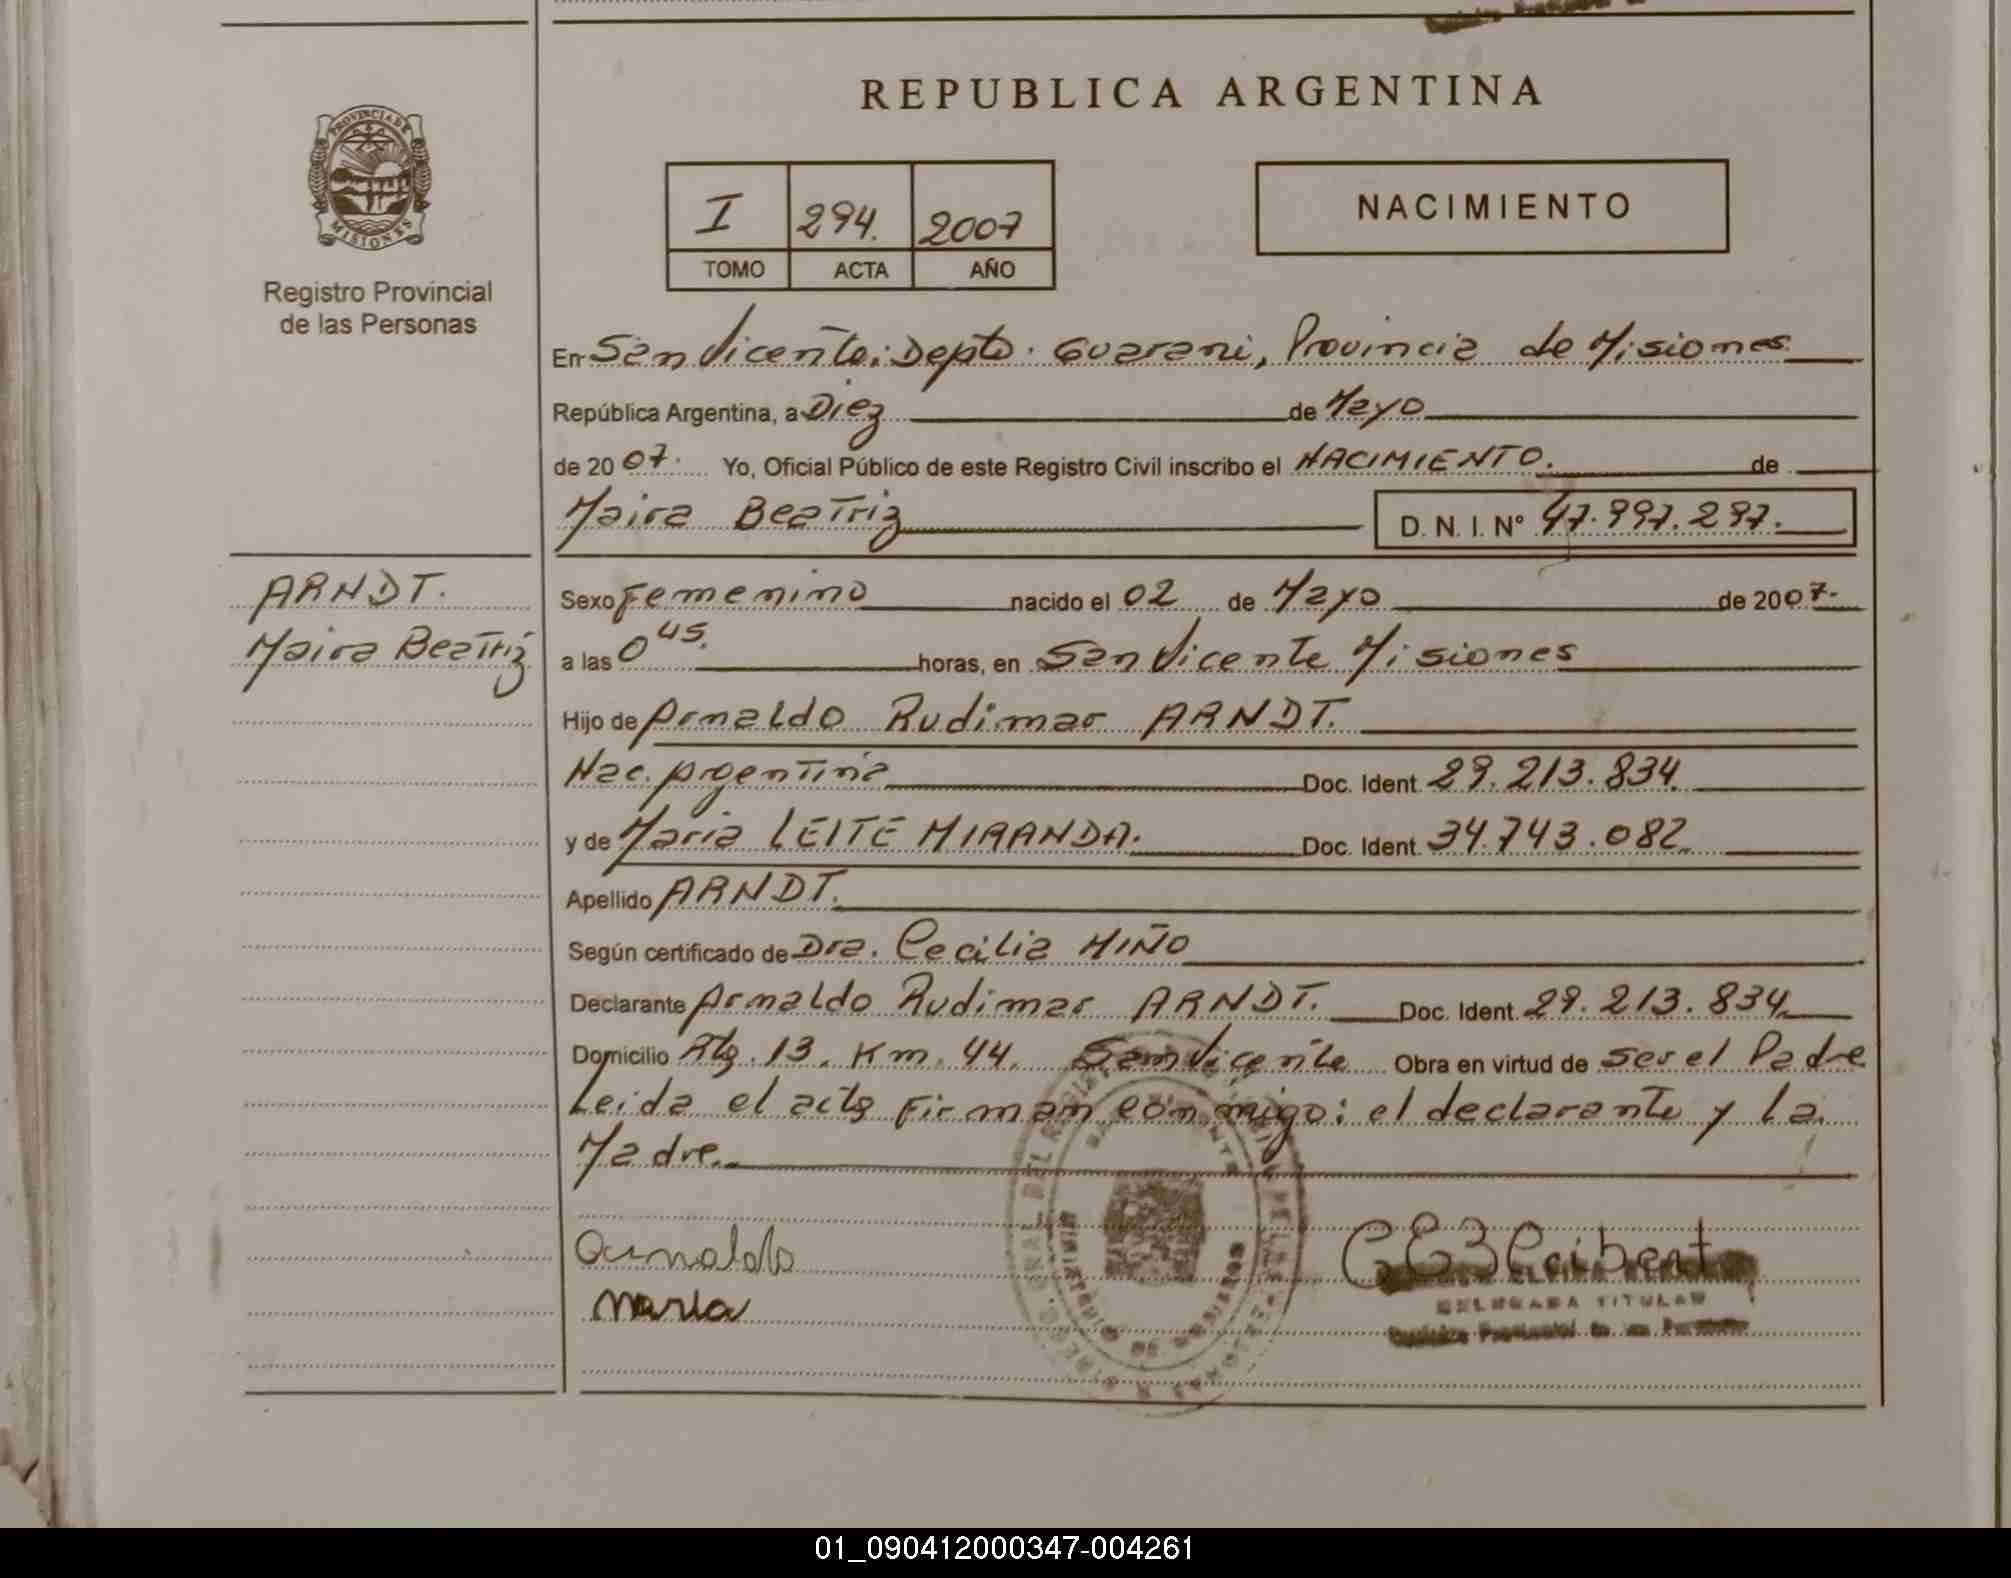 REPUBLICA ARGENTINA
PROVINCIA DE
MISIONES
Registro Provincial
de las Personas
I 294. 2007
TOMO ACTA AÑO
NACIMIENTO
En San Vicente: Depto. Guarani, Provincia de Misiones
República Argentina, a Diez de Mayo
de 2007. Yo, Oficial Público de este Registro Civil inscribo el NACIMIENTO. de
Maira Beatriz D. N. I. N° 47.997.297.
ARNDT.
Maira Beatriz
Sexo Femenino nacido el 02 de Mayo de 2007.
a las 0 45. horas, en San Vicente Misiones
Hijo de Arnaldo Rudimar ARNDT.
Nac. Argentina Doc. Ident. 29.213.834.
y de Maria LEITE MIRANDA. Doc. Ident. 34.743.082.
Apellido ARNDT.
Según certificado de Dra. Cecilia MIÑO
Declarante Arnaldo Rudimar ARNDT. Doc. Ident. 29.213.834.
Domicilio Rta. 13. Km. 44. San Vicente Obra en virtud de ser el Padre
Leida el acta Firman conmigo: el declarante y La
Madre.
Arnaldo
Maria
DELEGADA TITULAR
01_090412000347-004261